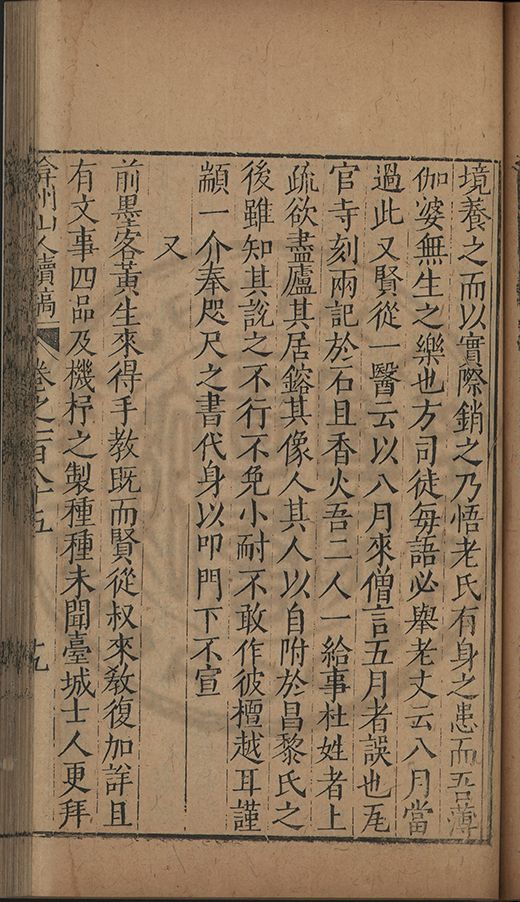 境養之而以實際銷之乃悟老氏有身之患而吾薄
伽婆無生之樂也方司徒每語必舉老丈云八月當
過此又賢從一醫云以八月來僧言五月者誤也瓦
官寺刻兩記於石且香火吾二人一給事杜姓者上
疏欲盡廬其居鎔其像人其人以自附於昌黎氏之
後雖知其說之不行不免小耐不敢作彼檀越耳謹
顓一介奉咫尺之書代身以叩門下不宣
又
前墨客黃生來得手教既而賢從叔來教復加詳且
有文事四品及機杼之製種種未聞臺城士人更拜
弇州山人續稿 卷之一百八十五 十九